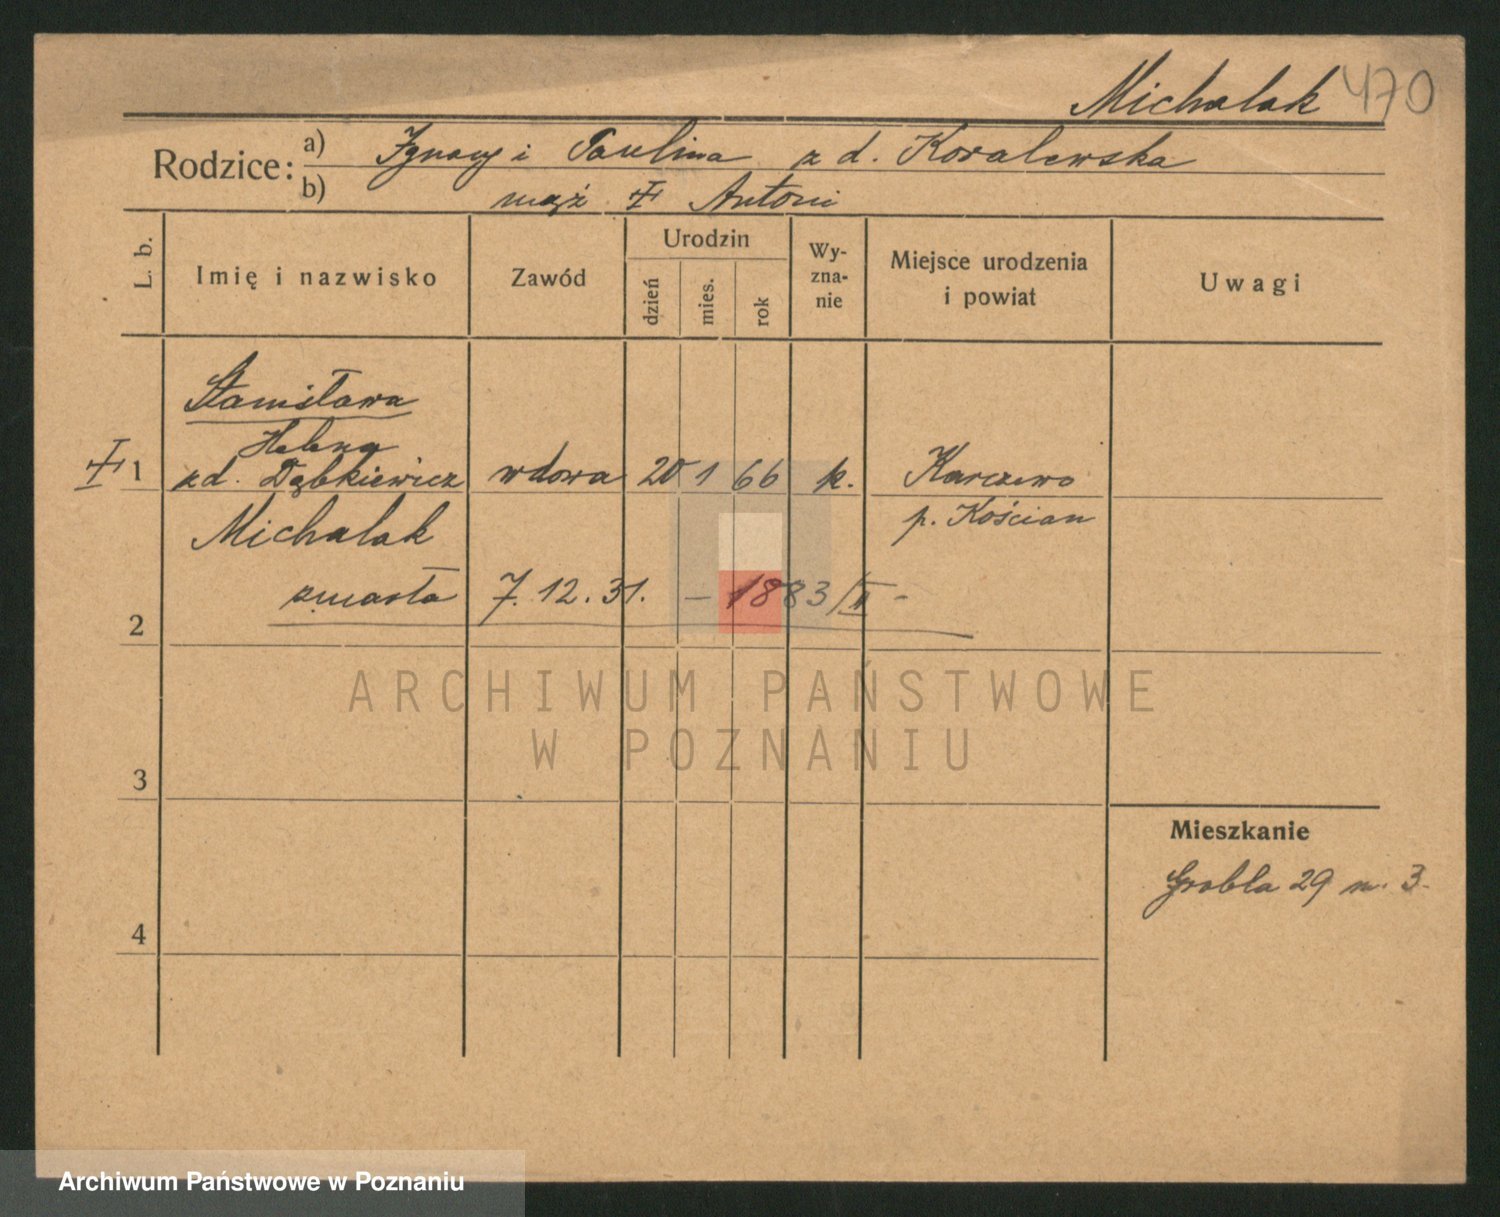 Michalak 470
Rodzice: a) Ignacy i Paulina z d. Kowalewska
b) mąż Antoni
L. b.
Imię i nazwisko
Zawód
Urodzin
dzień
mies.
rok
Wy-
zna-
nie
Miejsce urodzenia
i powiat
Uwagi
Stanisława
Helena
1 zd. Dąbkiewicz wdowa 20 1 66 k. Karczewo
Michalak p. Kościan
zmarła 7.12.31. – 1883/II –
2
ARCHIWUM PAŃSTWOWE
W POZNANIU
3
Mieszkanie
Grobla 29 m. 3.
4
Archiwum Państwowe w Poznaniu